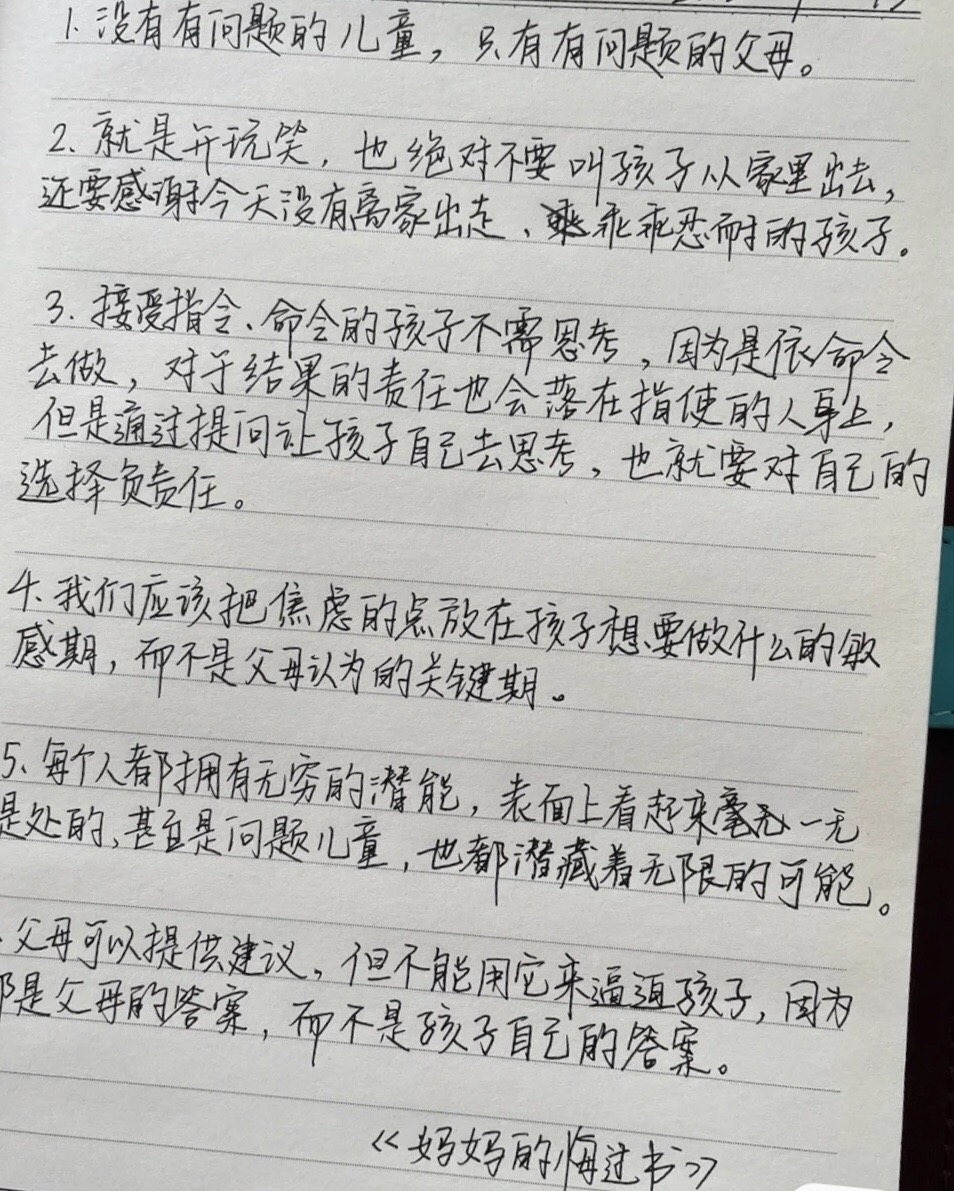 1. 没有有问题的儿童，只有有问题的父母。
2. 就是开玩笑，也绝对不要叫孩子从家里出去，
还要感谢今天没有离家出走、乖乖忍耐的孩子。
3. 接受指令、命令的孩子不需思考，因为是依命令
去做，对于结果的责任也会落在指使的人身上，
但是通过提问让孩子自己去思考，也就要对自己的
选择负责任。
4. 我们应该把焦虑的点放在孩子想要做什么的敏
感期，而不是父母认为的关键期。
5、每个人都拥有无穷的潜能，表面上看起来一无
是处的、甚至是问题儿童，也都潜藏着无限的可能。
、父母可以提供建议，但不能用它来逼迫孩子，因为
那是父母的答案，而不是孩子自己的答案。
《妈妈的悔过书》